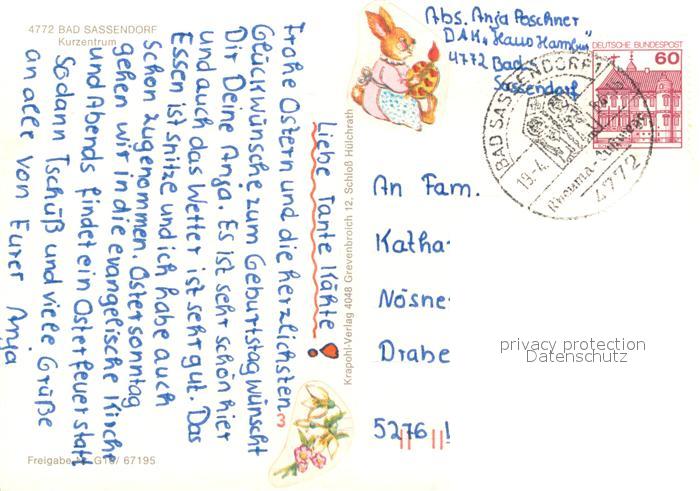 4772 BAD SASSENDORF
Kurzentrum
Liebe Tante Käthe!
Frohe Ostern und die herzlichsten
Glückwünsche zum Geburtstag wünscht
Dir Deine Anja. Es ist sehr schön hier
und auch das Wetter ist sehr gut. Das
Essen ist spitze und ich habe auch
schon zugenommen. Ostersonntag
gehen wir in die evangelische Kirche
und Abends findet ein Osterfeuer statt
Sodann Tschüß und viele Grüße
an alle von Eurer Anja
Freigabe Nr. G16/ 67195
Krapohl-Verlag 4048 Grevenbroich 12, Schloß Hülchrath
Abs. Anja Poschner
DAK „Haus Hamburg"
4772 Bad
Sassendorf
DEUTSCHE BUNDESPOST
60
BAD SASSENDORF 1
19.-4.
Rheuma -
4772
An Fam.
Katha
Nösne
Drabe
5276
privacy protection
Datenschutz